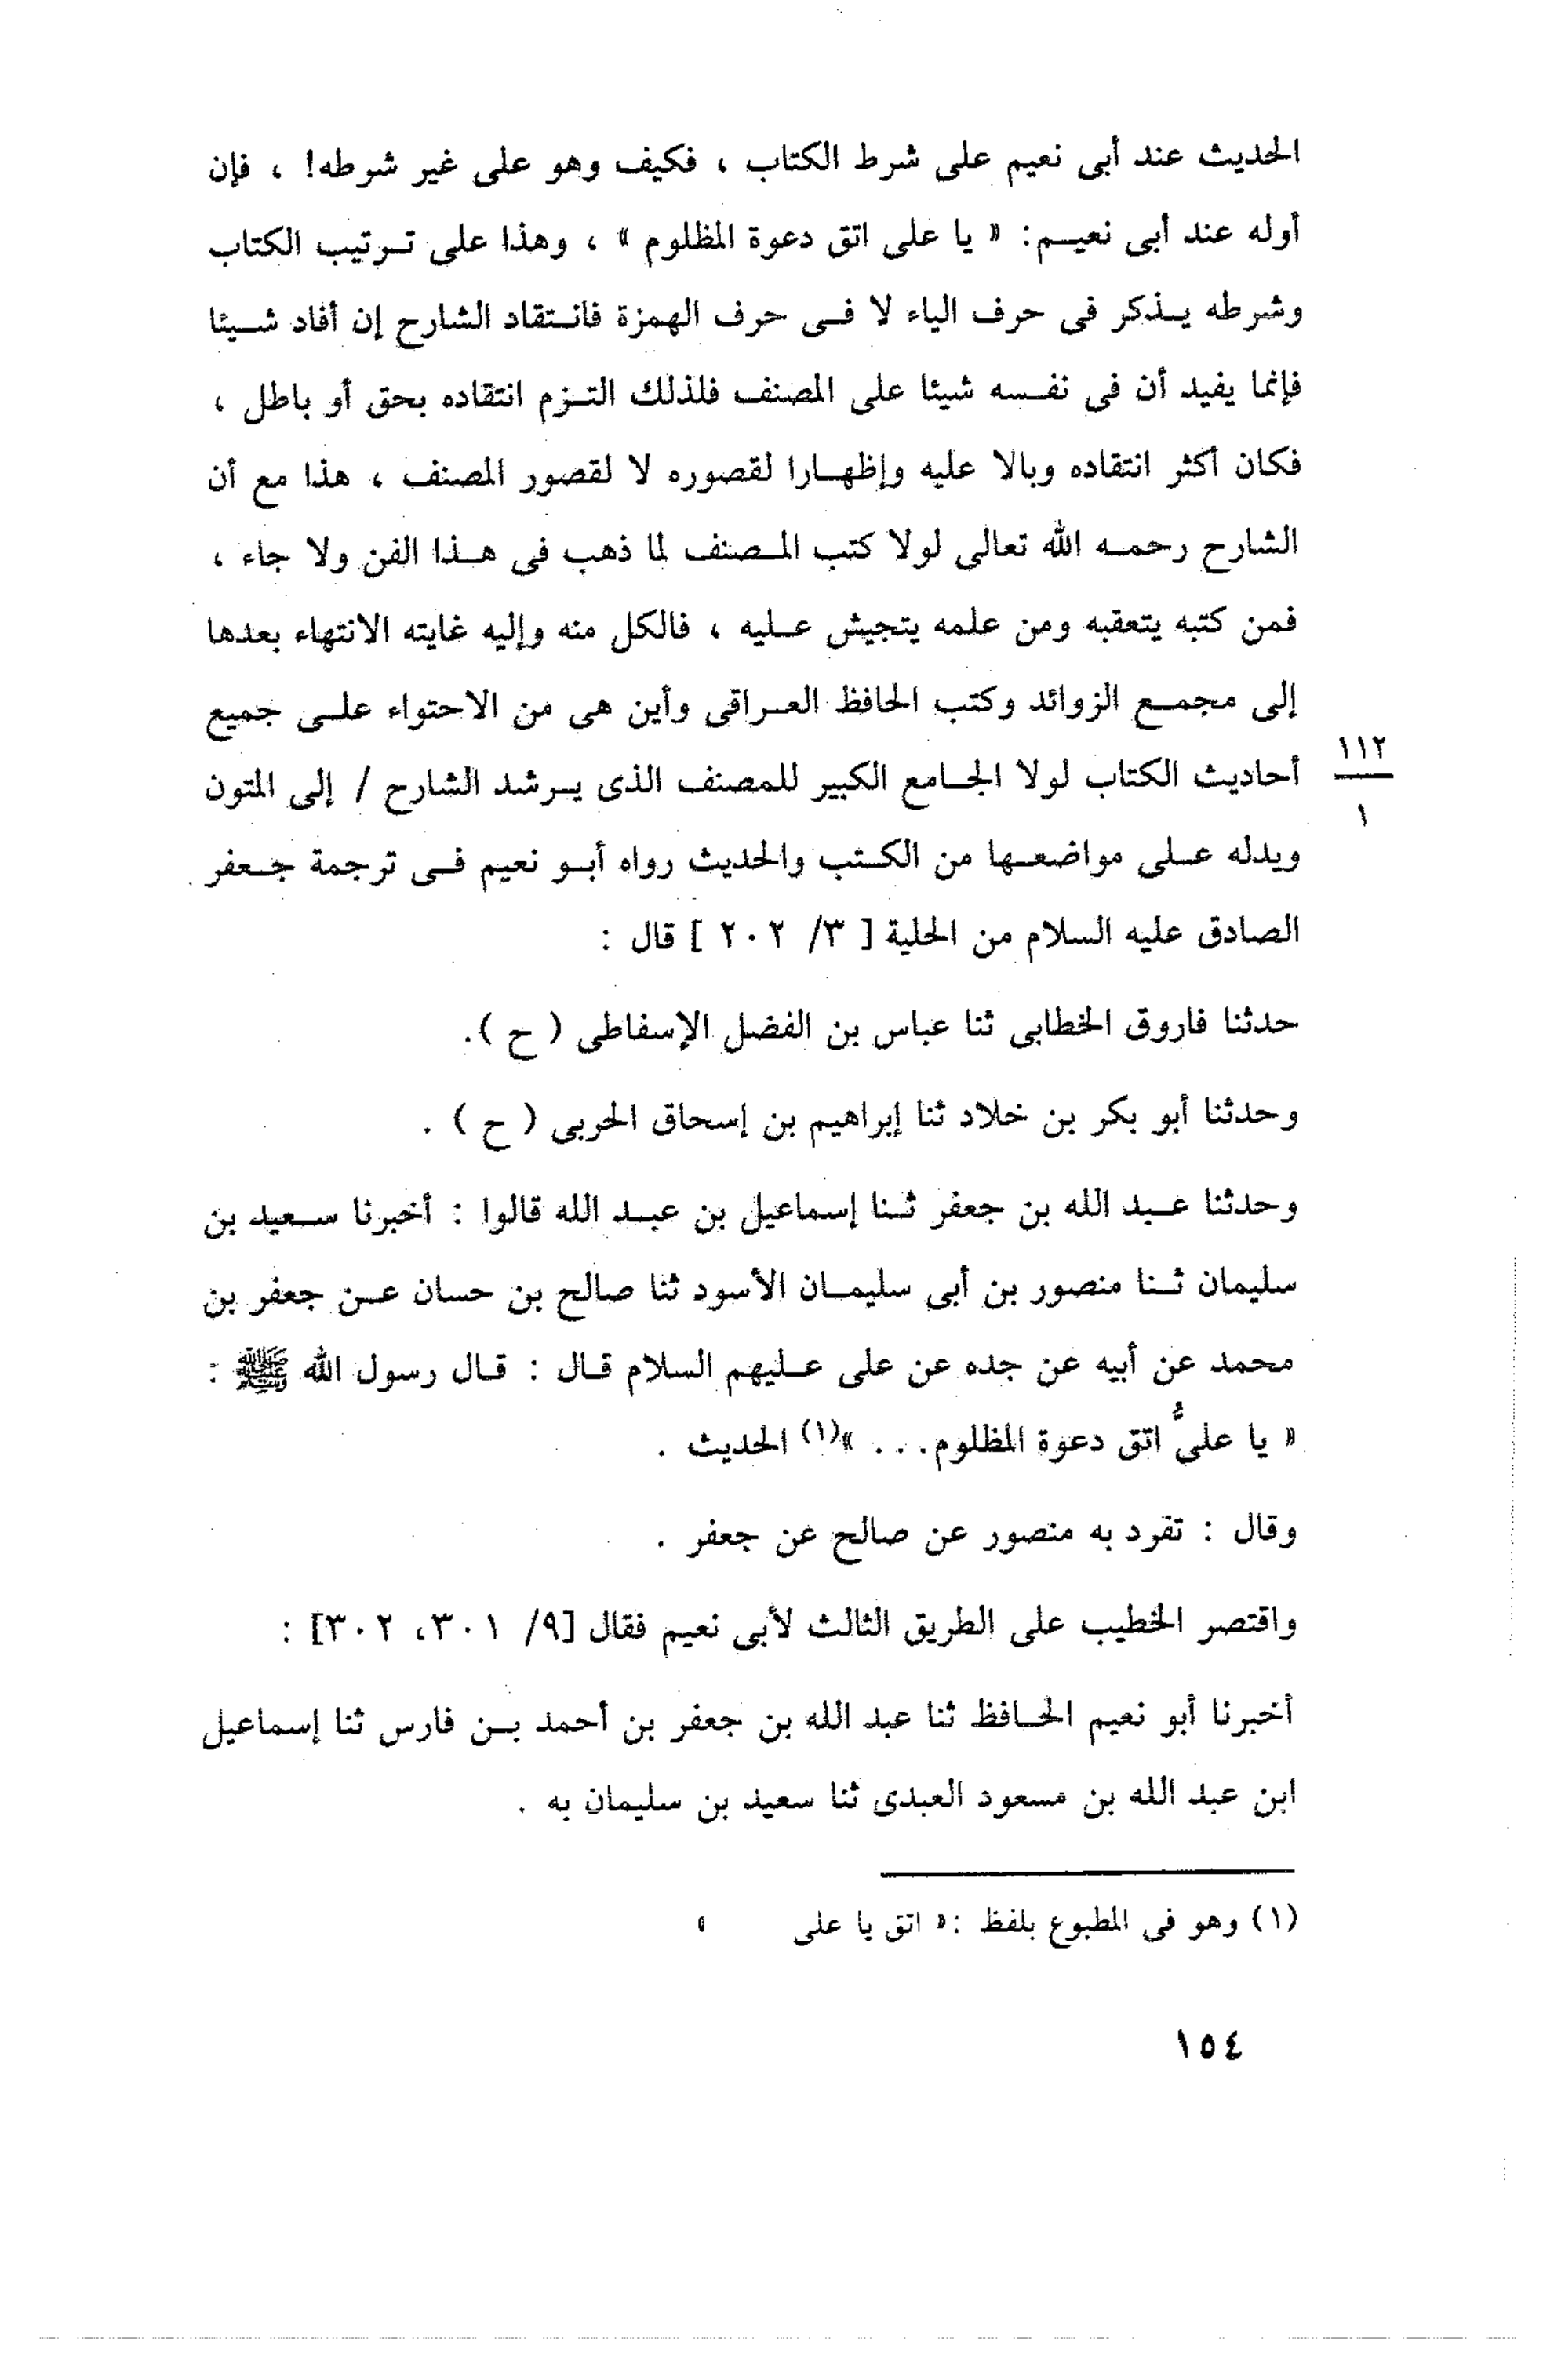 الحديث عند أبى نعيم على شرط الكتاب ، فكيف وهو على غير شرطه! ، فإن
أوله عند أبى نعيم: « يا على اتق دعوة المظلوم » ، وهذا على ترتيب الكتاب
وشرطه يذكر فى حرف الياء لا فى حرف الهمزة فانتقاد الشارح إن أفاد شيئا
فإنما يفيد أن فى نفسه شيئا على المصنف فلذلك التزم انتقاده بحق أو باطل ،
فكان أكثر انتقاده وبالا عليه وإظهارا لقصوره لا لقصور المصنف ، هذا مع أن
الشارح رحمه الله تعالى لولا كتب المصنف لما ذهب فى هذا الفن ولا جاء ،
فمن كتبه يتعقبه ومن علمه يتجيش عليه ، فالكل منه وإليه غايته الانتهاء بعدها
إلى مجمع الزوائد وكتب الحافظ العراقى وأين هى من الاحتواء على جميع
١١٢
١
أحاديث الكتاب لولا الجامع الكبير للمصنف الذى يرشد الشارح / إلى المتون
ويدله على مواضعها من الكتب والحديث رواه أبو نعيم فى ترجمة جعفر
الصادق عليه السلام من الحلية [ ٣/ ٢٠٢ ] قال :
حدثنا فاروق الخطابى ثنا عباس بن الفضل الإسفاطى ( ح ).
وحدثنا أبو بكر بن خلاد ثنا إبراهيم بن إسحاق الحربى ( ح ) .
وحدثنا عبد الله بن جعفر ثنا إسماعيل بن عبد الله قالوا : أخبرنا سعيد بن
سليمان ثنا منصور بن أبى سليمان الأسود ثنا صالح بن حسان عن جعفر بن
محمد عن أبيه عن جده عن على عليهم السلام قال : قال رسول الله ﷺ :
« يا علىُّ اتق دعوة المظلوم. . . »(١) الحديث .
وقال : تفرد به منصور عن صالح عن جعفر .
واقتصر الخطيب على الطريق الثالث لأبى نعيم فقال [٩/ ٣٠١، ٣٠٢] :
أخبرنا أبو نعيم الحافظ ثنا عبد الله بن جعفر بن أحمد بن فارس ثنا إسماعيل
ابن عبد الله بن مسعود العبدى ثنا سعيد بن سليمان به .
(١) وهو فى المطبوع بلفظ :« اتق يا على »
١٥٤